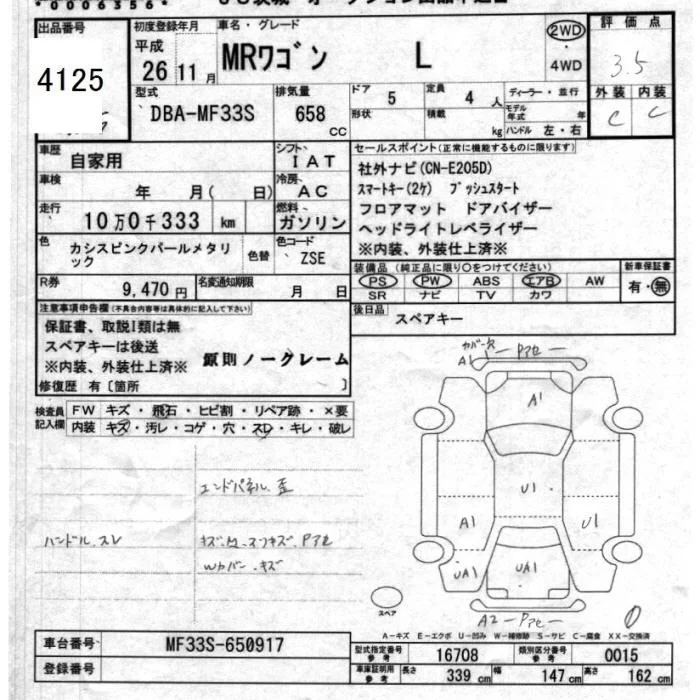 *0006356*
出品番号 4125
初度登録年月 平成 26 11月
車名・グレード MRワゴン L
2WD ・ 4WD
評価点 3.5
外装 内装
C C
型式 DBA-MF33S
排気量 658 CC
ドア 5 定員 4 人
形状 積載 kg
ディーラー・並行
モデル年式 年
ハンドル 左・右
車歴 自家用
シフト IAT
車検 年 月( 日)
冷房 AC
走行 10万0千333 km
燃料 ガソリン
色 カシスピンクパールメタリック 色替
色コード ZSE
R券 9,470円
名変通知期限 月 日
セールスポイント(正常に機能するものに限ります)
社外ナビ(CN-E205D)
スマートキー(2ケ) プッシュスタート
フロアマット ドアバイザー
ヘッドライトレベライザー
※内装、外装仕上済※
装備品(純正品に限り○をつけてください)
PS PW ABS エアB AW
SR ナビ TV カワ
新車保証書 有・無
後日品 スペアキー
注意事項申告欄(不具合内容等は具体的に記入して下さい)
保証書、取説I類は無
スペアキーは後送
※内装、外装仕上済※ 原則ノークレーム
修復歴 有〔箇所 〕
検査員記入欄
FW キズ・飛石・ヒビ割・リペア跡・×要
内装 キズ・汚レ・コゲ・穴・スレ・キレ・破レ
エンドパネル.歪
ハンドル.スレ
Wカバー.キズ
カバー欠
A1 Pアセ
A1
U1
A1
U1
UA1
UA1
A2 Pアセ
スペア
A-キズ E-エクボ U-凹み W-補修跡 S-サビ C-腐食 XX-交換済
車台番号 MF33S-650917
登録番号
型式指定番号 参考 16708 類別区分番号 参考 0015
車庫証明用 参考 長さ 339 cm 幅 147 cm 高さ 162 cm